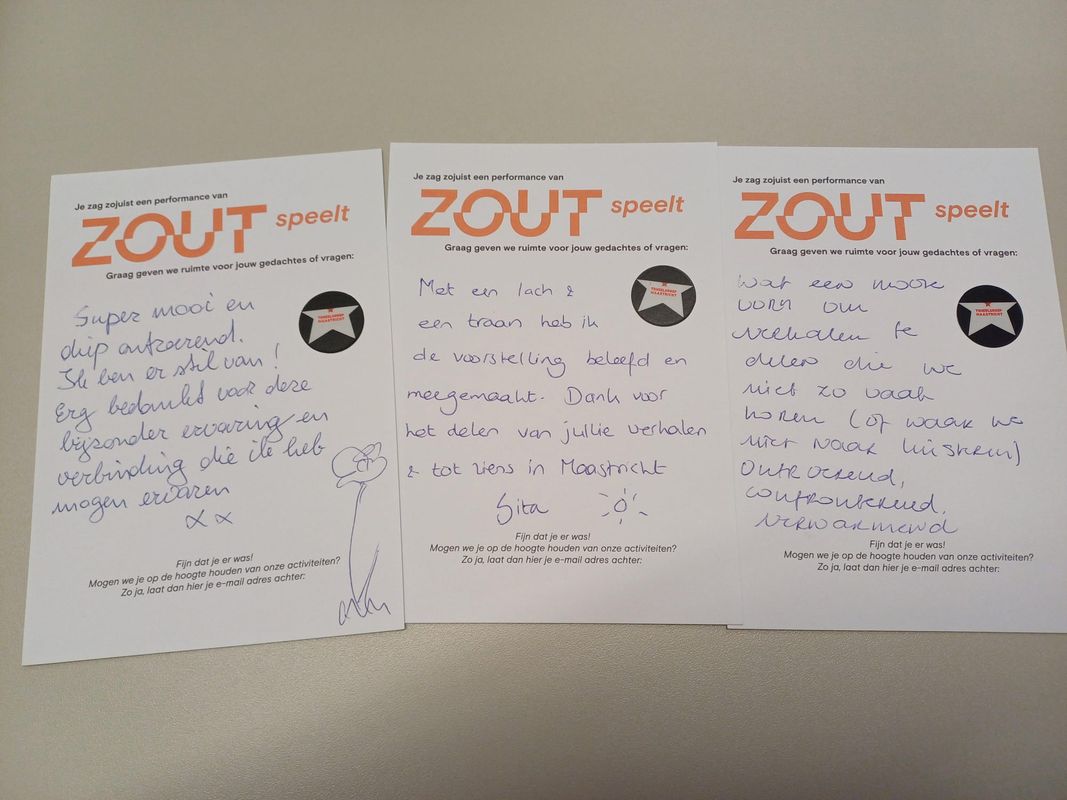 Je zag zojuist een performance van
ZOUT speelt
Graag geven we ruimte voor jouw gedachtes of vragen:
TONEELGROEP
MAASTRICHT
Super mooi en
diep ontroerend.
Ik ben er stil van!
Erg bedankt voor deze
bijzonder ervaring en
verbinding die ik heb
mogen ervaren
xx
Fijn dat je er was!
Mogen we je op de hoogte houden van onze activiteiten?
Zo ja, laat dan hier je e-mail adres achter:
Je zag zojuist een performance van
ZOUT speelt
Graag geven we ruimte voor jouw gedachtes of vragen:
TONEELGROEP
MAASTRICHT
Met een lach &
een traan heb ik
de voorstelling beleefd en
meegemaakt. Dank voor
het delen van jullie verhalen
& tot ziens in Maastricht
Sita
Fijn dat je er was!
Mogen we je op de hoogte houden van onze activiteiten?
Zo ja, laat dan hier je e-mail adres achter:
Je zag zojuist een performance van
ZOUT speelt
Graag geven we ruimte voor jouw gedachtes of vragen:
TONEELGROEP
MAASTRICHT
wat een mooie
vorm om
verhalen te
delen die we
niet zo vaak
horen (of waar we
niet naar luisteren)
ontroerend,
confronterend.
verwarmend
Fijn dat je er was!
Mogen we je op de hoogte houden van onze activiteiten?
Zo ja, laat dan hier je e-mail adres achter: